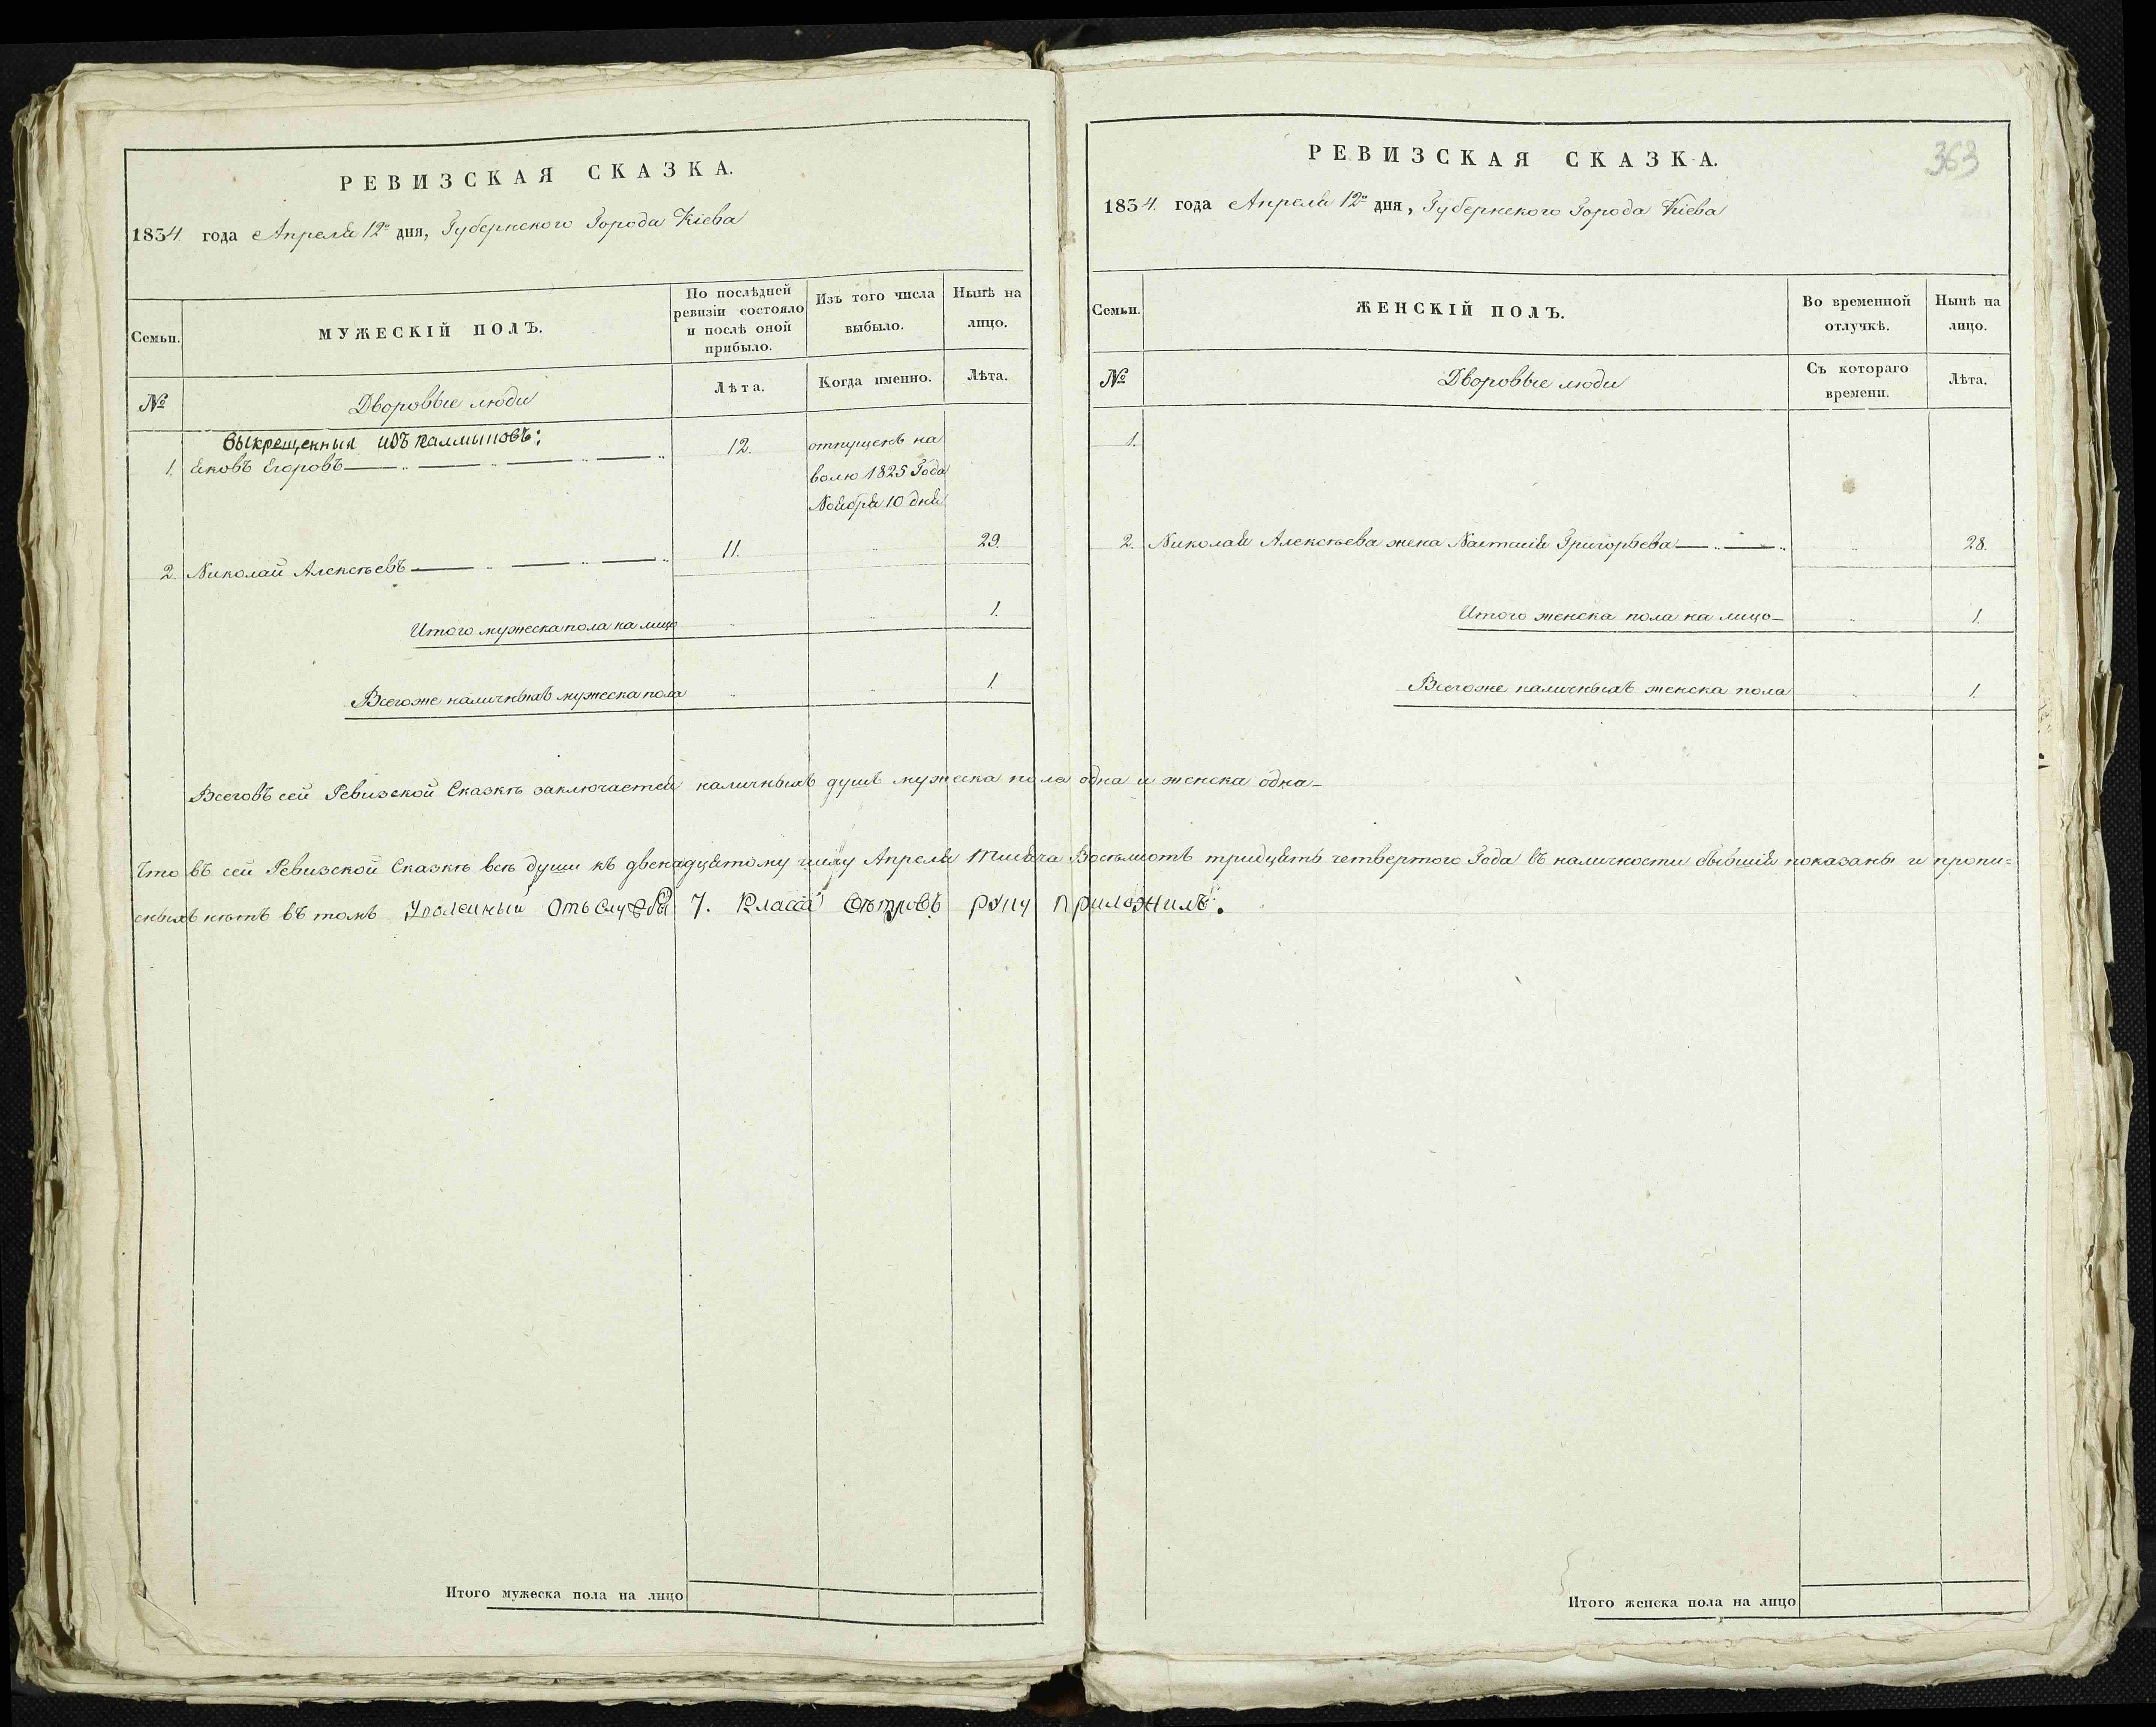 РЕВИЗСКАЯ СКАЗКА.
1834. года Апреля 12го дня, Губернского Города Кіева
Семьи.
МУЖЕСКІЙ ПОЛЪ.
По послѣдней
ревизіи состояло
и послѣ оной
прибыло.
Изъ того числа
выбыло.
Нынѣ на
лицо.
№
Дворовые люди
Лѣта.
Когда именно.
Лѣта.
Выкрещенныя изъ Калмыковъ:
1. Яковъ Егоровъ 12. отпущенъ на
волю 1825 Года
Ноября 10 дня
2. Николай Алексѣевъ 11. 29.
Итого мужеска пола на лицо 1.
Всего же наличныхъ мужеска пола 1.
РЕВИЗСКАЯ СКАЗКА.
363
1834. года Апреля 12го дня, Губернского Города Кіева
Семьи.
ЖЕНСКІЙ ПОЛЪ.
Во временной
отлучкѣ.
Нынѣ на
лицо.
№
Дворовые люди
Съ котораго
времени.
Лѣта.
1.
2. Николая Алексѣева жена Настасія Григорьева 28.
Итого женска пола на лицо 1.
Всего же наличныхъ женска пола 1
Всего въ сей Ревизской Сказкѣ заключается наличныхъ душъ мужеска пола одна и женска одна
Что въ сей Ревизской Сказкѣ всѣ души къ двенадцатому числу Апреля тысяча Восемьсотъ тридцать четвертого Года въ наличности бывшія показаны и пропи=
сныхъ нѣтъ въ томъ отъ службы 7. Класса руку приложилъ.
Итого мужеска пола на лицо
Итого женска пола на лицо